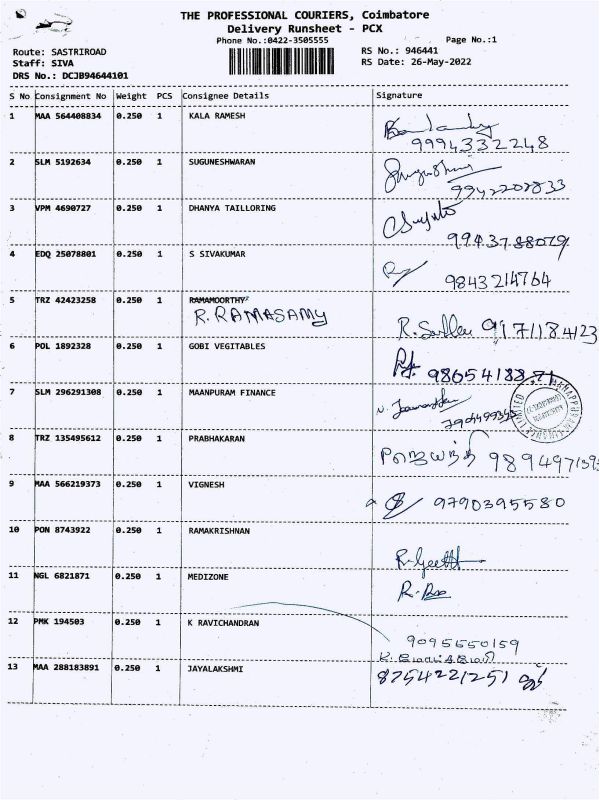 THE PROFESSIONAL COURIERS, Coimbatore
Delivery Runsheet - PCX
Phone No.:0422-3505555 Page No.:1
Route: SASTRIROAD RS No.: 946441
Staff: SIVA RS Date: 26-May-2022
DRS No.: DCJB94644101
S No Consignment No Weight PCS Consignee Details Signature
1 MAA 564408834 0.250 1 KALA RAMESH
9994332248
2 SLM 5192634 0.250 1 SUGUNESHWARAN
9942207833
3 VPM 4690727 0.250 1 DHANYA TAILLORING
9943788079
4 EDQ 25078801 0.250 1 S SIVAKUMAR
9843214764
5 TRZ 42423258 0.250 1 RAMAMOORTHY
R. RAMASAMY 9171184123
6 POL 1892328 0.250 1 GOBI VEGITABLES
9865418871
7 SLM 296291308 0.250 1 MAANPURAM FINANCE
8 TRZ 135495612 0.250 1 PRABHAKARAN
9894971395
9 MAA 566219373 0.250 1 VIGNESH
9790395580
10 PON 8743922 0.250 1 RAMAKRISHNAN
R. Geetha
11 NGL 6821871 0.250 1 MEDIZONE
12 PMK 194503 0.250 1 K RAVICHANDRAN
9095650159
13 MAA 288183891 0.250 1 JAYALAKSHMI
8754221251